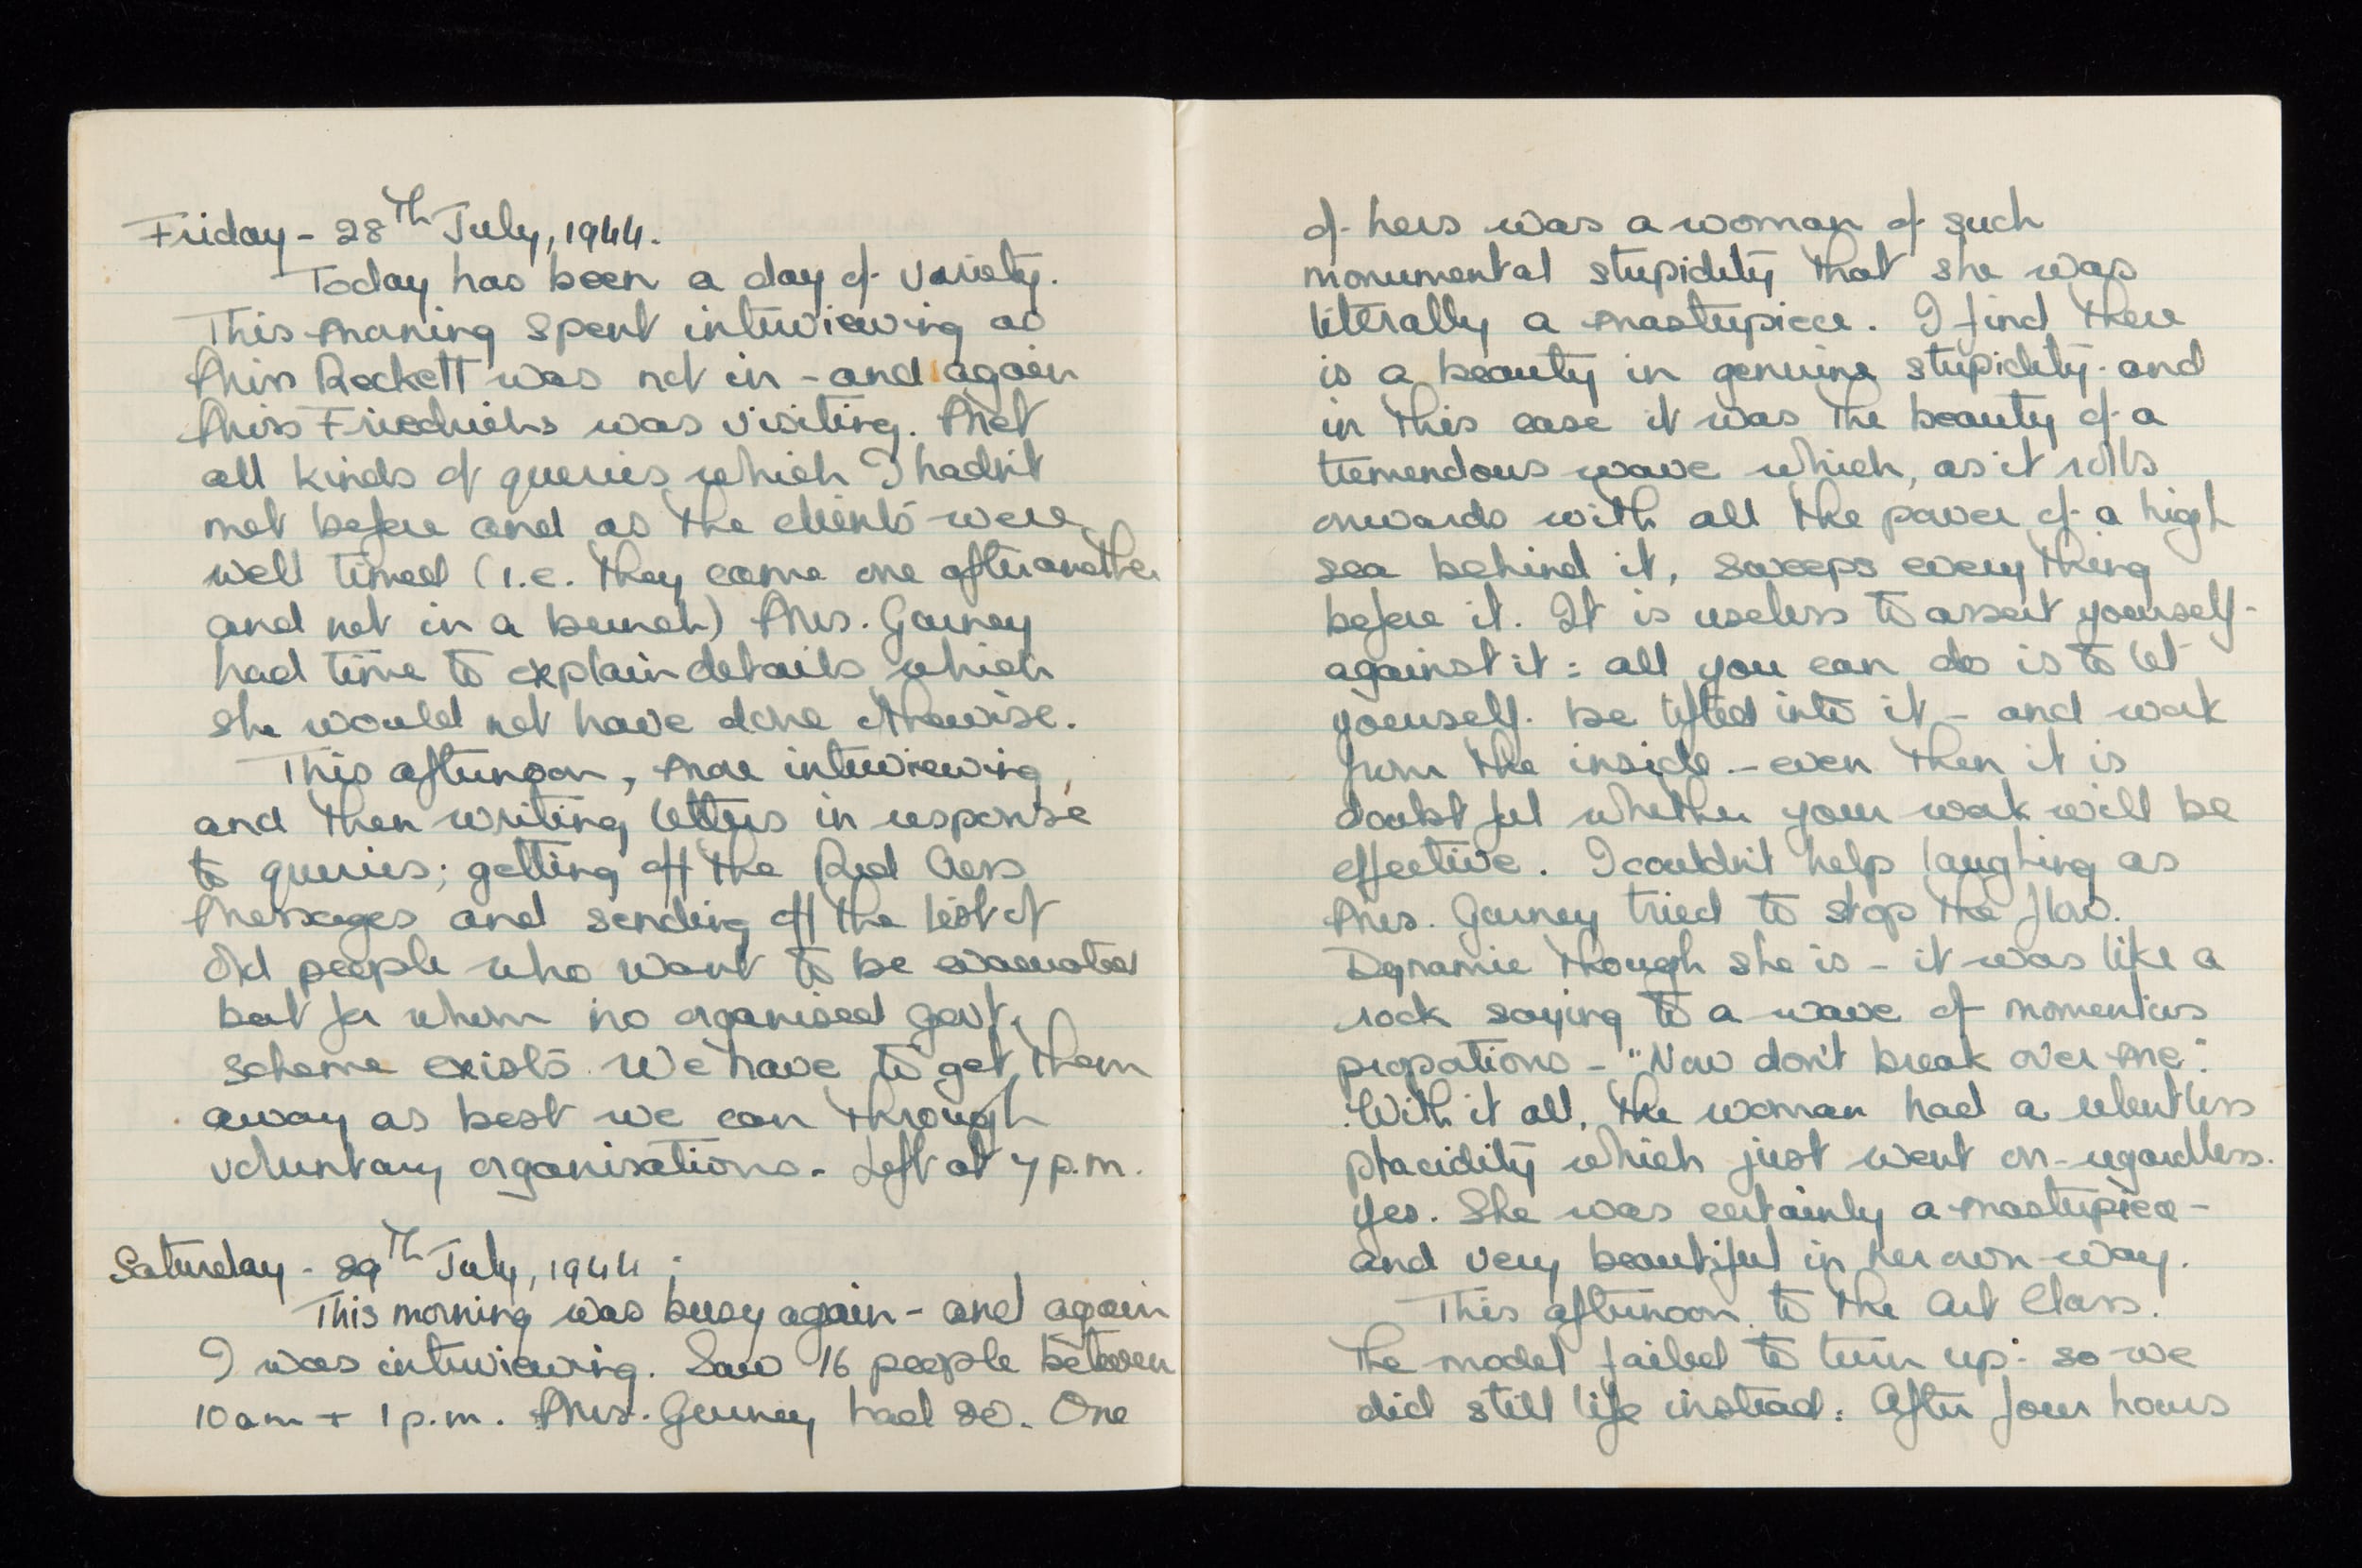 Friday - 28th July, 1944.
Today has been a day of variety.
This morning spent interviewing as
Miss Rockett was not in - and again
Miss Friedrichs was visiting. Met
all kinds of queries which I hadn't
met before and as the clients were
well timed (i.e. they came one after another
and not in a bunch) Mrs. Gurney
had time to explain details which
she would not have done otherwise.
This afternoon, more interviewing,
and then writing letters in response
to queries; getting off the Red Cross
Messages and sending off the list of
old people who want to be evacuated
but for whom no organised govt.
scheme exists. We have to get them
away as best we can through
voluntary organisations. Left at 7 p.m.
Saturday - 29th July, 1944.
This morning was busy again - and again
I was interviewing. Saw 16 people between
10 am + 1 p.m. Mrs. Gurney had 20. One
of hers was a woman of such
monumental stupidity that she was
literally a masterpiece. I find there
is a beauty in genuine stupidity - and
in this case it was the beauty of a
tremendous wave which, as it rolls
onwards with all the power of a high
sea behind it, sweeps everything
before it. It is useless to assert yourself
against it: all you can do is to let
yourself be lifted into it - and work
from the inside - even then it is
doubtful whether your work will be
effective. I couldn't help laughing as
Mrs. Gurney tried to stop the flow.
Dynamic though she is - it was like a
rock saying to a wave of momentous
proportions - "Now don't break over me".
With it all, the woman had a relentless
placidity which just went on - regardless.
Yes. She was certainly a masterpiece -
and very beautiful in her own way.
This afternoon to the Art Class.
The model failed to turn up: so we
did still life instead. After four hours